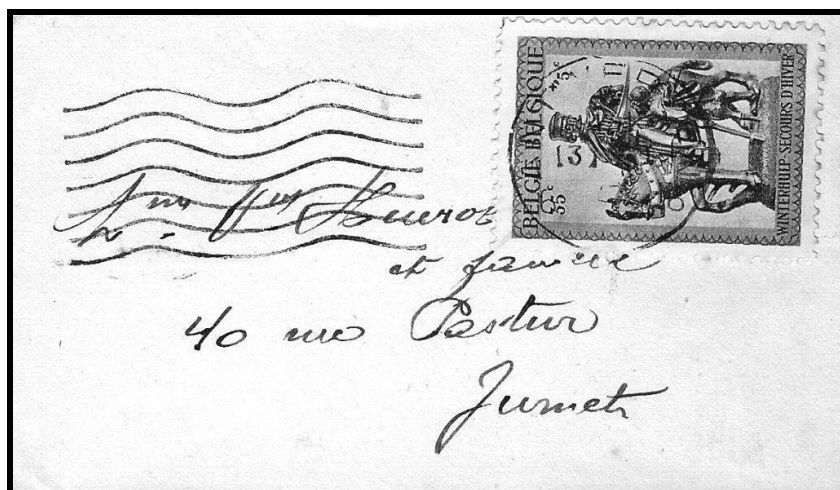 BELGIE-BELGIQUE
WINTERHULP-SECOURS D'HIVER
35c
5c
13
et famille
40 rue Pasteur
Jumet